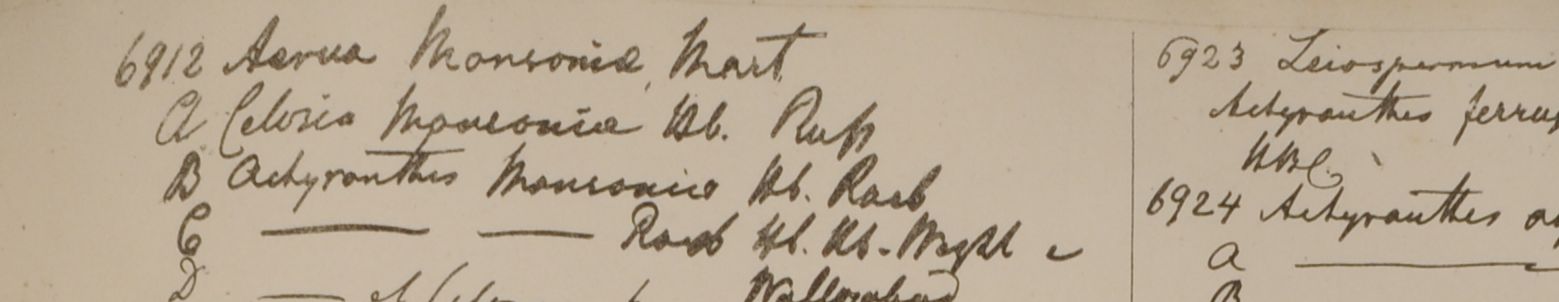 6912 Aerua Monsoniæ, Mart
A Celosia Monsoniæ Hb. Russ
B Achyranthes Monsoniæ Hb. Roxb
C — — Roxb Hb. Hb. Wight
D — Wallazabad
6923 Leiospermum
Achyranthes ferrug
HBC.
6924 Achyranthes
A —
B